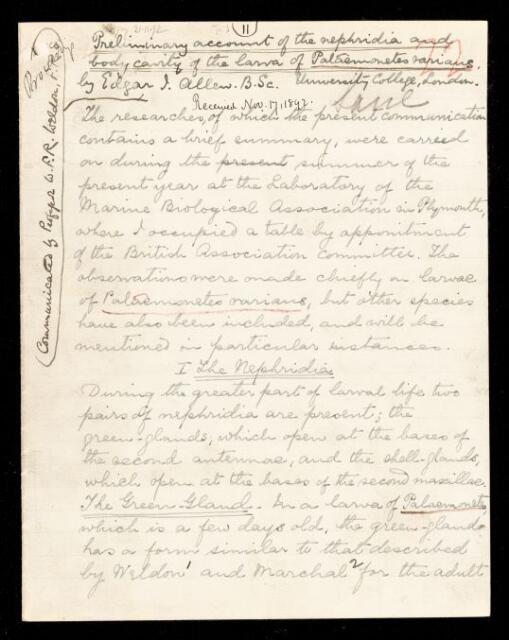 11
Preliminary account of the nephridia and
body cavity of the larva of Palaemonetes varians.
by Edgar J. Allen. B.Sc. University College, London.
Received Nov. 17, 1892.
(Communicated by Profr W.F.R. Weldon, F.R.S.)
The researches, of which the present communication
contains a brief summary, were carried
on during the present summer of the
present year at the Laboratory of the
Marine Biological Association in Plymouth,
where I occupied a table by appointment
of the British Association Committee. The
observations were made chiefly on larvae
of Palaemonetes varians, but other species
have also been included, and will be
mentioned in particular instances.
I The Nephridia.
During the greater part of larval life two
pairs of nephridia are present; the
green-glands, which open at the bases of
the second antennae, and the shell-glands,
which open at the bases of the second maxillae.
The Green-Gland. In a larva of Palaemonetes
which is a few days old, the green-gland
has a form similar to that described
by Weldon1 and Marchal2 for the adult